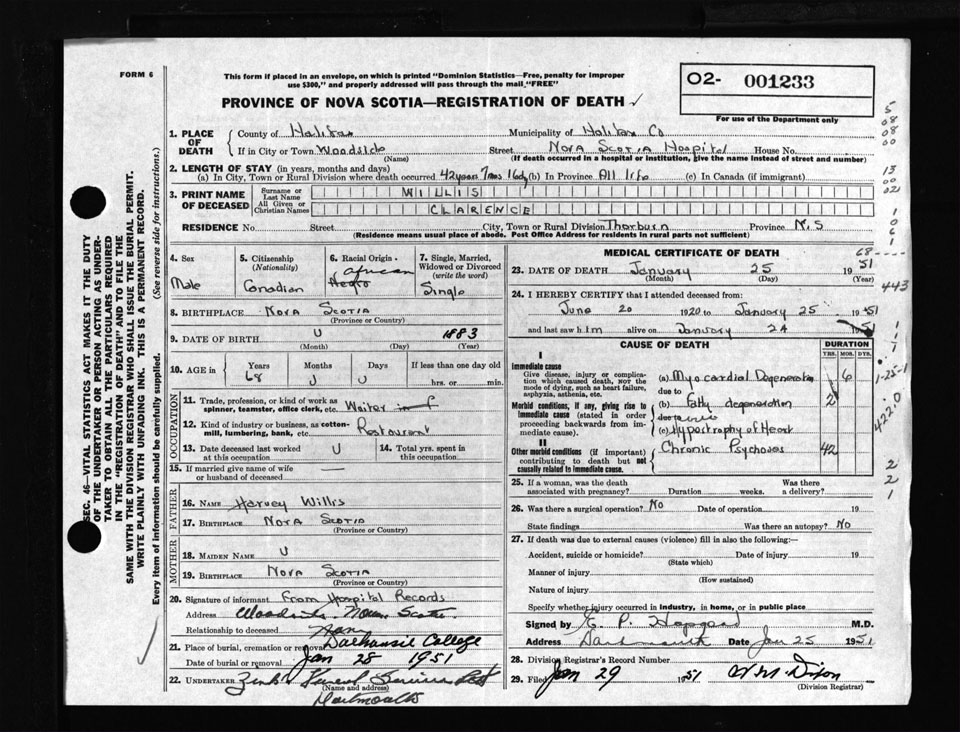 FORM 6
This form if placed in an envelope, on which is printed "Dominion Statistics—Free, penalty for improper
use $300," and properly addressed will pass through the mail "FREE"
O2- 001233
PROVINCE OF NOVA SCOTIA—REGISTRATION OF DEATH ✓
For use of the Department only
SEC. 46—VITAL STATISTICS ACT MAKES IT THE DUTY
OF THE UNDERTAKER OR PERSON ACTING AS UNDER-
TAKER TO OBTAIN ALL THE PARTICULARS REQUIRED
IN THE "REGISTRATION OF DEATH" AND TO FILE THE
SAME WITH THE DIVISION REGISTRAR WHO SHALL ISSUE THE BURIAL PERMIT.
WRITE PLAINLY WITH UNFADING INK. THIS IS A PERMANENT RECORD.
Every item of information should be carefully supplied. (See reverse side for instructions.)
1. PLACE OF DEATH
County of Halifax Municipality of Halifax Co
If in City or Town Woodside Street Nova Scotia Hospital House No.
(Name) (If death occurred in a hospital or institution, give the name instead of street and number)
2. LENGTH OF STAY (in years, months and days)
(a) In City, Town or Rural Division where death occurred 42 years 7 mos 16 dy (b) In Province All life (c) In Canada (if immigrant)
3. PRINT NAME OF DECEASED
Surname or Last Name WILLIS
All Given or Christian Names CLARENCE
RESIDENCE No. Street City, Town or Rural Division Thorburn Province N.S
(Residence means usual place of abode. Post Office Address for residents in rural parts not sufficient)
4. Sex Male
5. Citizenship (Nationality) Canadian
6. Racial Origin African Negro
7. Single, Married, Widowed or Divorced (write the word) Single
8. BIRTHPLACE Nova Scotia
(Province or Country)
9. DATE OF BIRTH U 1883
(Month) (Day) (Year)
10. AGE in Years 68 Months U Days U If less than one day old
hrs. or min.
OCCUPATION
11. Trade, profession, or kind of work as
spinner, teamster, office clerk, etc. Waiter
12. Kind of industry or business, as cotton-
mill, lumbering, bank, etc. Restaurant
13. Date deceased last worked at this occupation U
14. Total yrs. spent in this occupation
15. If married give name of wife or husband —
FATHER
16. NAME Harvey Willis
17. BIRTHPLACE Nova Scotia
(Province or Country)
MOTHER
18. MAIDEN NAME U
19. BIRTHPLACE Nova Scotia
(Province or Country)
20. Signature of informant From Hospital Records
Address Woodside Nova Scotia
Relationship to deceased None
21. Place of burial, cremation or removal Dalhousie College
Date of burial or removal Jan 28 1951
22. UNDERTAKER Funeral Service
(Name and address)
Dartmouth
MEDICAL CERTIFICATE OF DEATH
23. DATE OF DEATH January 25 1951
(Month) (Day) (Year)
24. I HEREBY CERTIFY that I attended deceased from:
June 20 1920 to January 25 1951
and last saw him alive on January 24 1951
CAUSE OF DEATH DURATION
YRS. MOS. DYS.
I
Immediate cause
Give disease, injury or complica-
tion which caused death, not the
mode of dying, such as heart failure,
asphyxia, asthenia, etc.
(a) Myocardial Degeneration 6
due to
Morbid conditions, if any, giving rise to
immediate cause (stated in order
proceeding backwards from im-
mediate cause).
(b) Fatty degeneration 2
due to
(c) Hypertrophy of Heart
II
Other morbid conditions (if important)
contributing to death but not
causally related to immediate cause.
Chronic Psychoses 42
25. If a woman, was the death Was there
associated with pregnancy? Duration weeks. a delivery?
26. Was there a surgical operation? No Date of operation 19
State findings Was there an autopsy? No
27. If death was due to external causes (violence) fill in also the following:—
Accident, suicide or homicide? Date of injury 19
(State which)
Manner of injury
(How sustained)
Nature of injury
Specify whether injury occurred in industry, in home, or in public place
Signed by M.D.
Address Dartmouth Date Jan 25 1951
28. Division Registrar's Record Number
29. Filed Jan 29 1951 Dixon
(Division Registrar)
5
08
08
00
13
00
02
1
0
6
1
68
443
1-25-1
4220
2
2
1